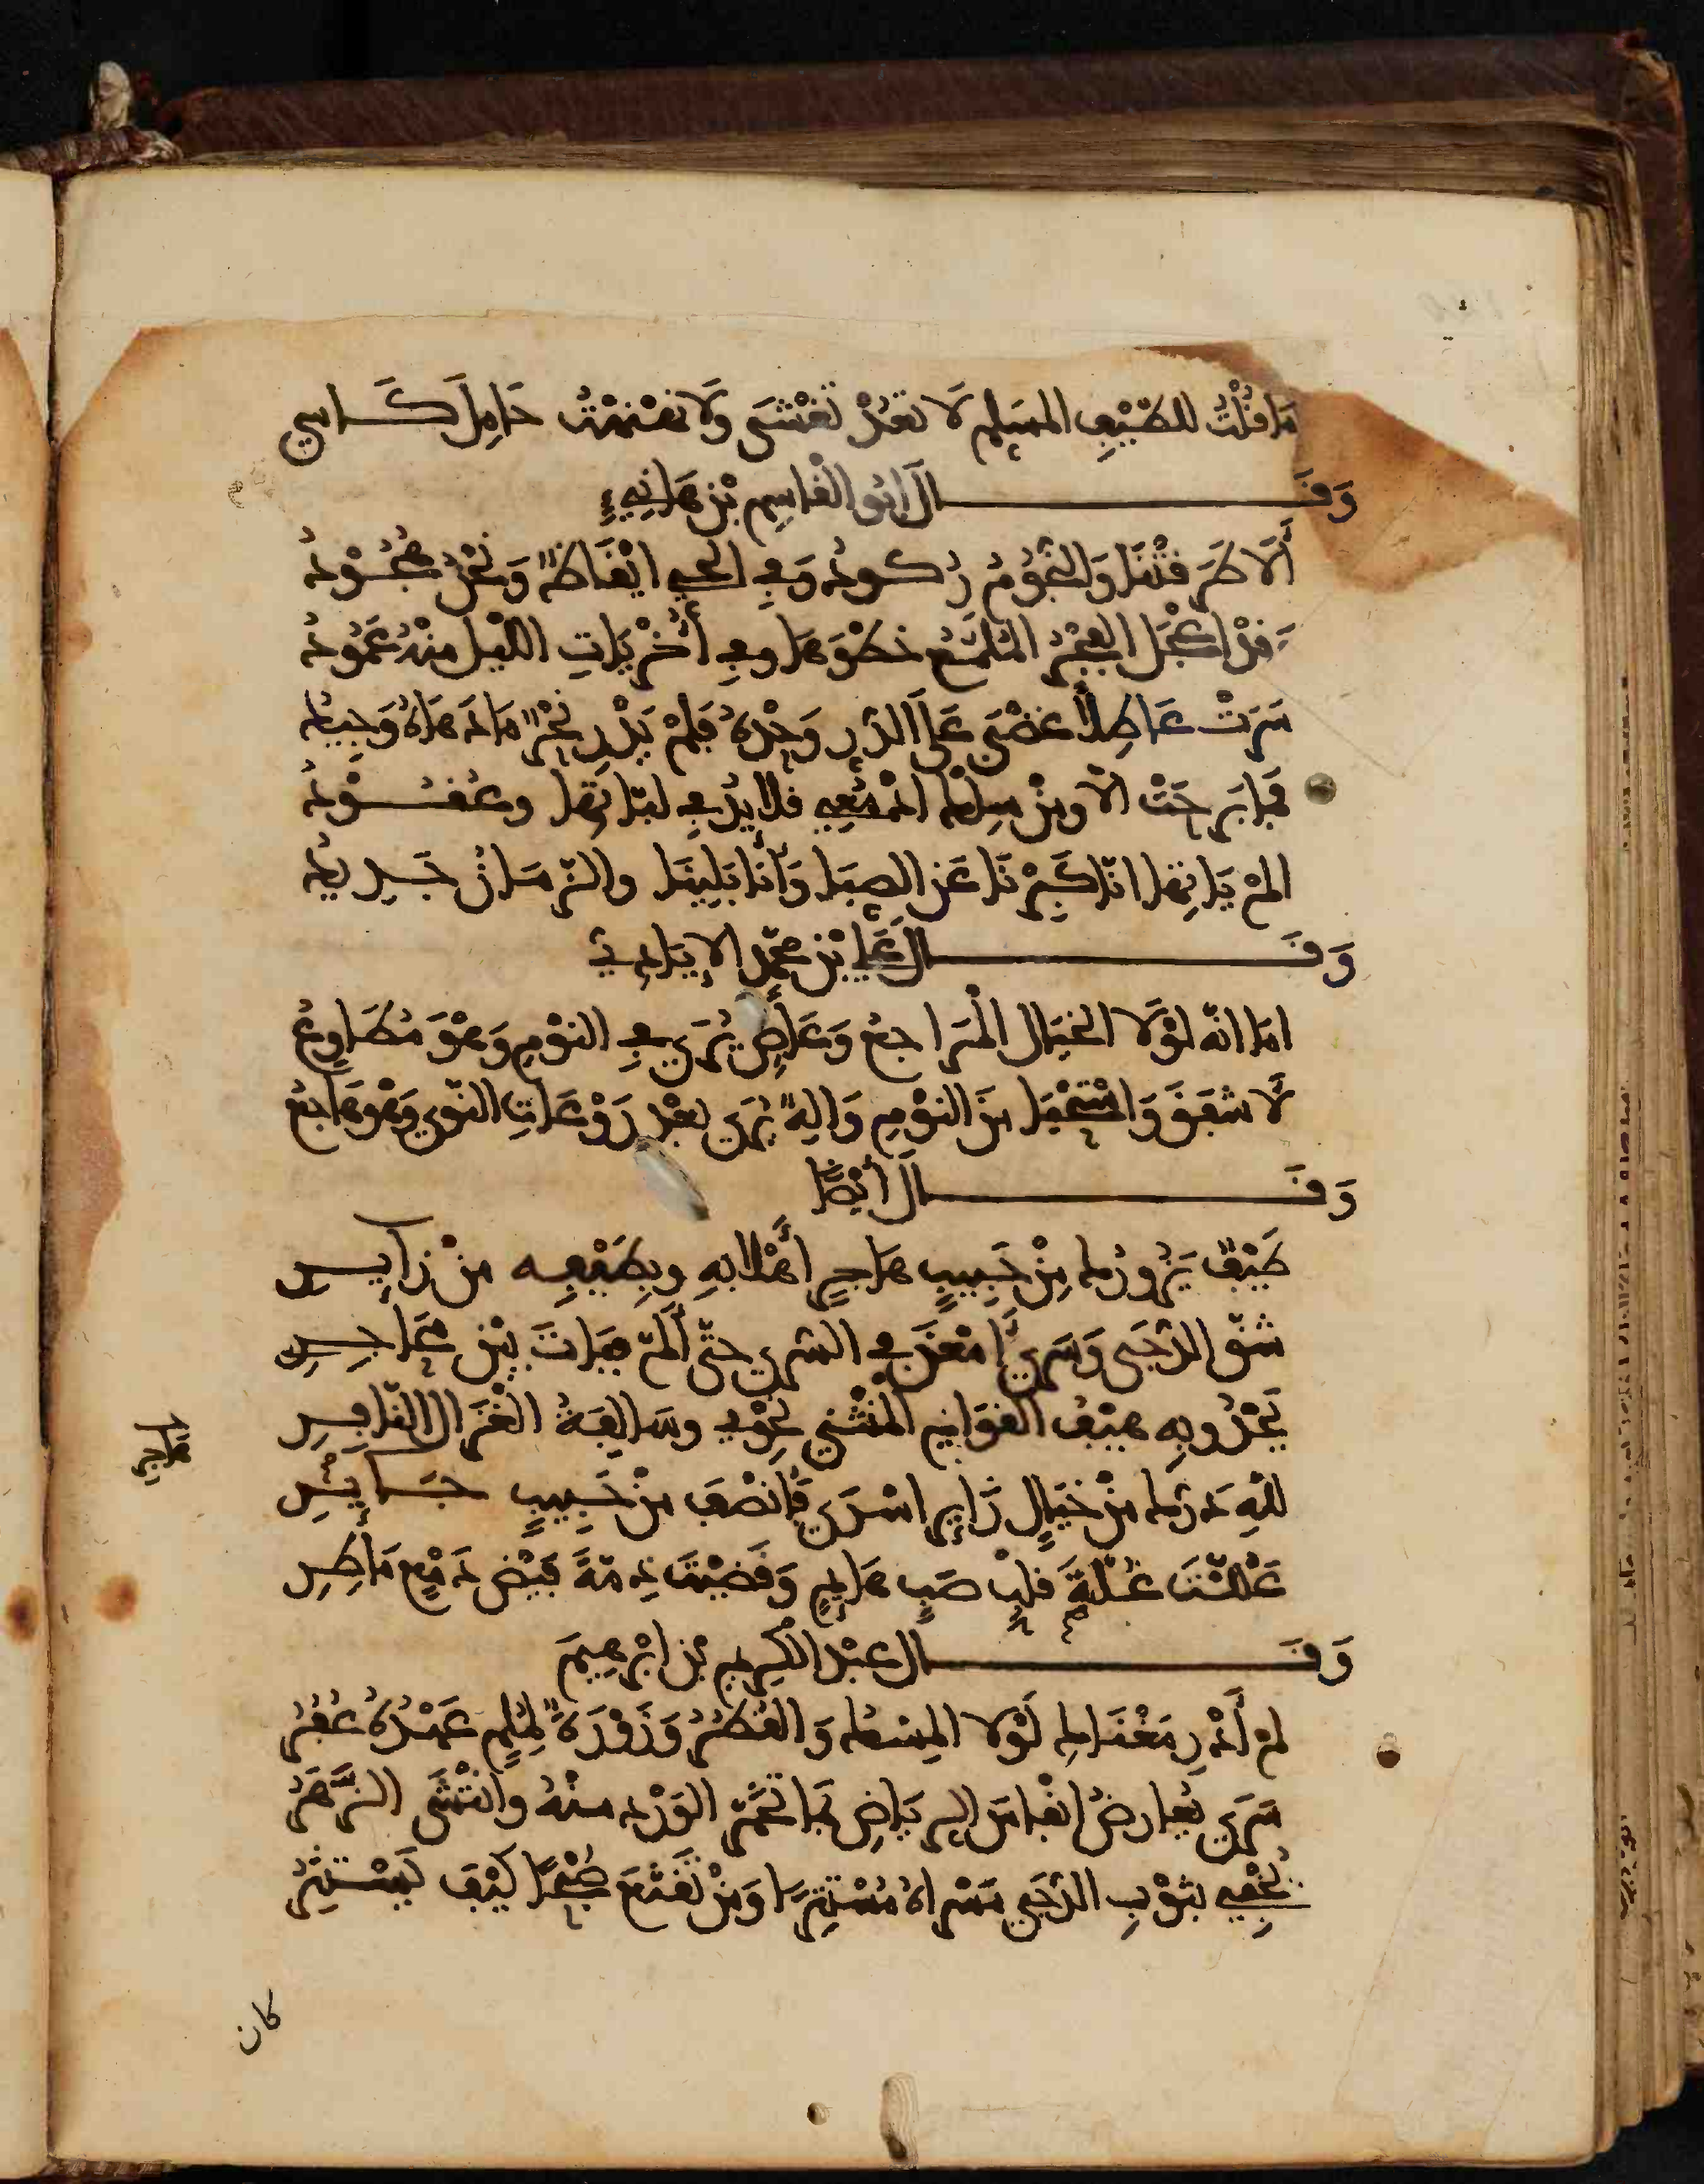 مَا قُلْتُ للطَّيْفِ المسَلِم لَا تَعُدْ تَغْشَى وَلَا نَهْنَهْتُ حَامِلَ كَاسِ
وَقَـــالَ ابُو الْقَاسِم بْن هَانِيءٍ
أَلَا طَرَقَتْنَا وَالنُّجُومُ رُكُودُ وَفِي الحَيِّ ايْقَاظٌ وَنَحْنُ هُجُودُ
وَقَدْ اعْجَلَ الْفَجْرُ المُلَمَّعُ خَطْوَهَا وفِي أُخْرَيَاتِ اللَّيْلِ مِنْهُ عَمُودُ
سَرَتْ عَاطِلًا غَضْبَى عَلَى الدُّرِّ وَحْدَهُ فَلَمْ يَدْرِ نَحْرٌ مَا دَهَاهُ وَجِيدُ
فَمَا بَرِحَتْ الَّا ومِنْ سِلْكِ ادْمُعِي قَلايِدُ فِي لَبَّاتِهَا وعُقُودُ
الَمْ يَاتِهَا انَّا كَبِرْنَا عَنِ الصِّبَا وَأنَّا بَلِينَا والزَّمَانُ جَدِيدُ
وَقَـــالَ عَلِي بْن مُحَمَّد الايَادِيّ
امَا انَّهُ لَوْلَا الخَيَالُ الْمُرَاجِعُ وَعَاصٍ يُرَى فِي النَّوْمِ وَهْوَ مُطَاوِعُ
لَأَشْفَقَ وَاسْتَحْيَا مِنَ النَّوْمِ وَالِهٌ يُرَى بَعْدَ رَوْعَاتِ النَّوَى وَهْوَ هَاجِعُ
وَقَـــالَ أَيْضًا
طَيْفٌ يَزُورُكَ مِنْ حَبِيبٍ هَاجِرٍ أَهْلًا بِهِ وبِطَيْفِهِ مِنْ زَايِرِ
شَقَّ الدُّجَى وَسَرَى فَأَمْعَنَ فِي السُّرَى حَتَّى أَلَمَّ فَبَاتَ بَيْنَ مَحَاجِرِ
يَحْدُو بِهِ هَيْفُ الْقَوَامِ الْمُنْثَنِي نَحْوِي وسَالِفَةُ الْغَزَالِ النَّافِرِ
هاجر
للَّهِ دَرُّكَ مِنْ خَيَالٍ زَايِرٍ اسْرَى فَأنْصَفَ مِنْ حَبِيبٍ جَايِرِ
عَلَّلْتَ غُلَّةَ قَلْبِ صَبٍّ هَايِمٍ وَقَضَيْتَ ذِمَّةَ فَيْضِ دَمْعٍ مَاطِرِ
وَقَـــالَ عَبْدُ الْكَرِيمِ بْن ابْرَهِيمَ
لم أَدْرِ مَغْنَاكِ لَوْلَا المِسْكُ وَالْقُطُرُ وَزَوْرَةٌ لمُلِمٍّ عَهْدُهُ عُفُرُ
سَرَى يُعَارِضُ انْفَاسَ الرِّيَاضِ بِمَا تَحَيَّرَ الوَرْدُ مِنْهُ وانْتَشَى الزَّهَرُ
يُخْفِي بِثَوْبِ الدُّجَى مَسْرَاهُ مُسْتَتِرًا وَمَنْ تَقَنَّعَ صُبْحًا كَيْفَ يَسْتَتِرُ
كان